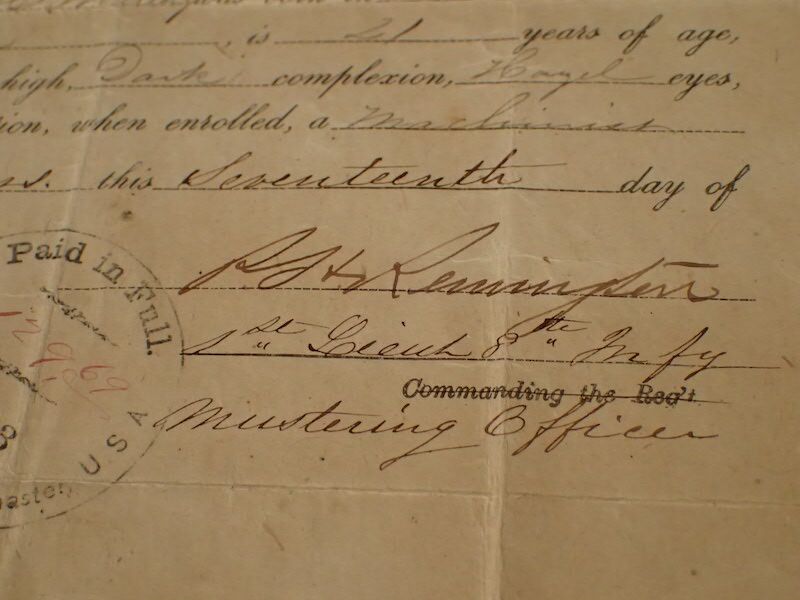 , is 21 years of age,
high, Dark complexion, Hazel eyes,
ion, when enrolled, a Machinist
ns. this Seventeenth day of
Paid in Full.
P. H. Remington
1st Lieut 8th Infy
Commanding the Reg't
Mustering Officer
69
USA
aster,